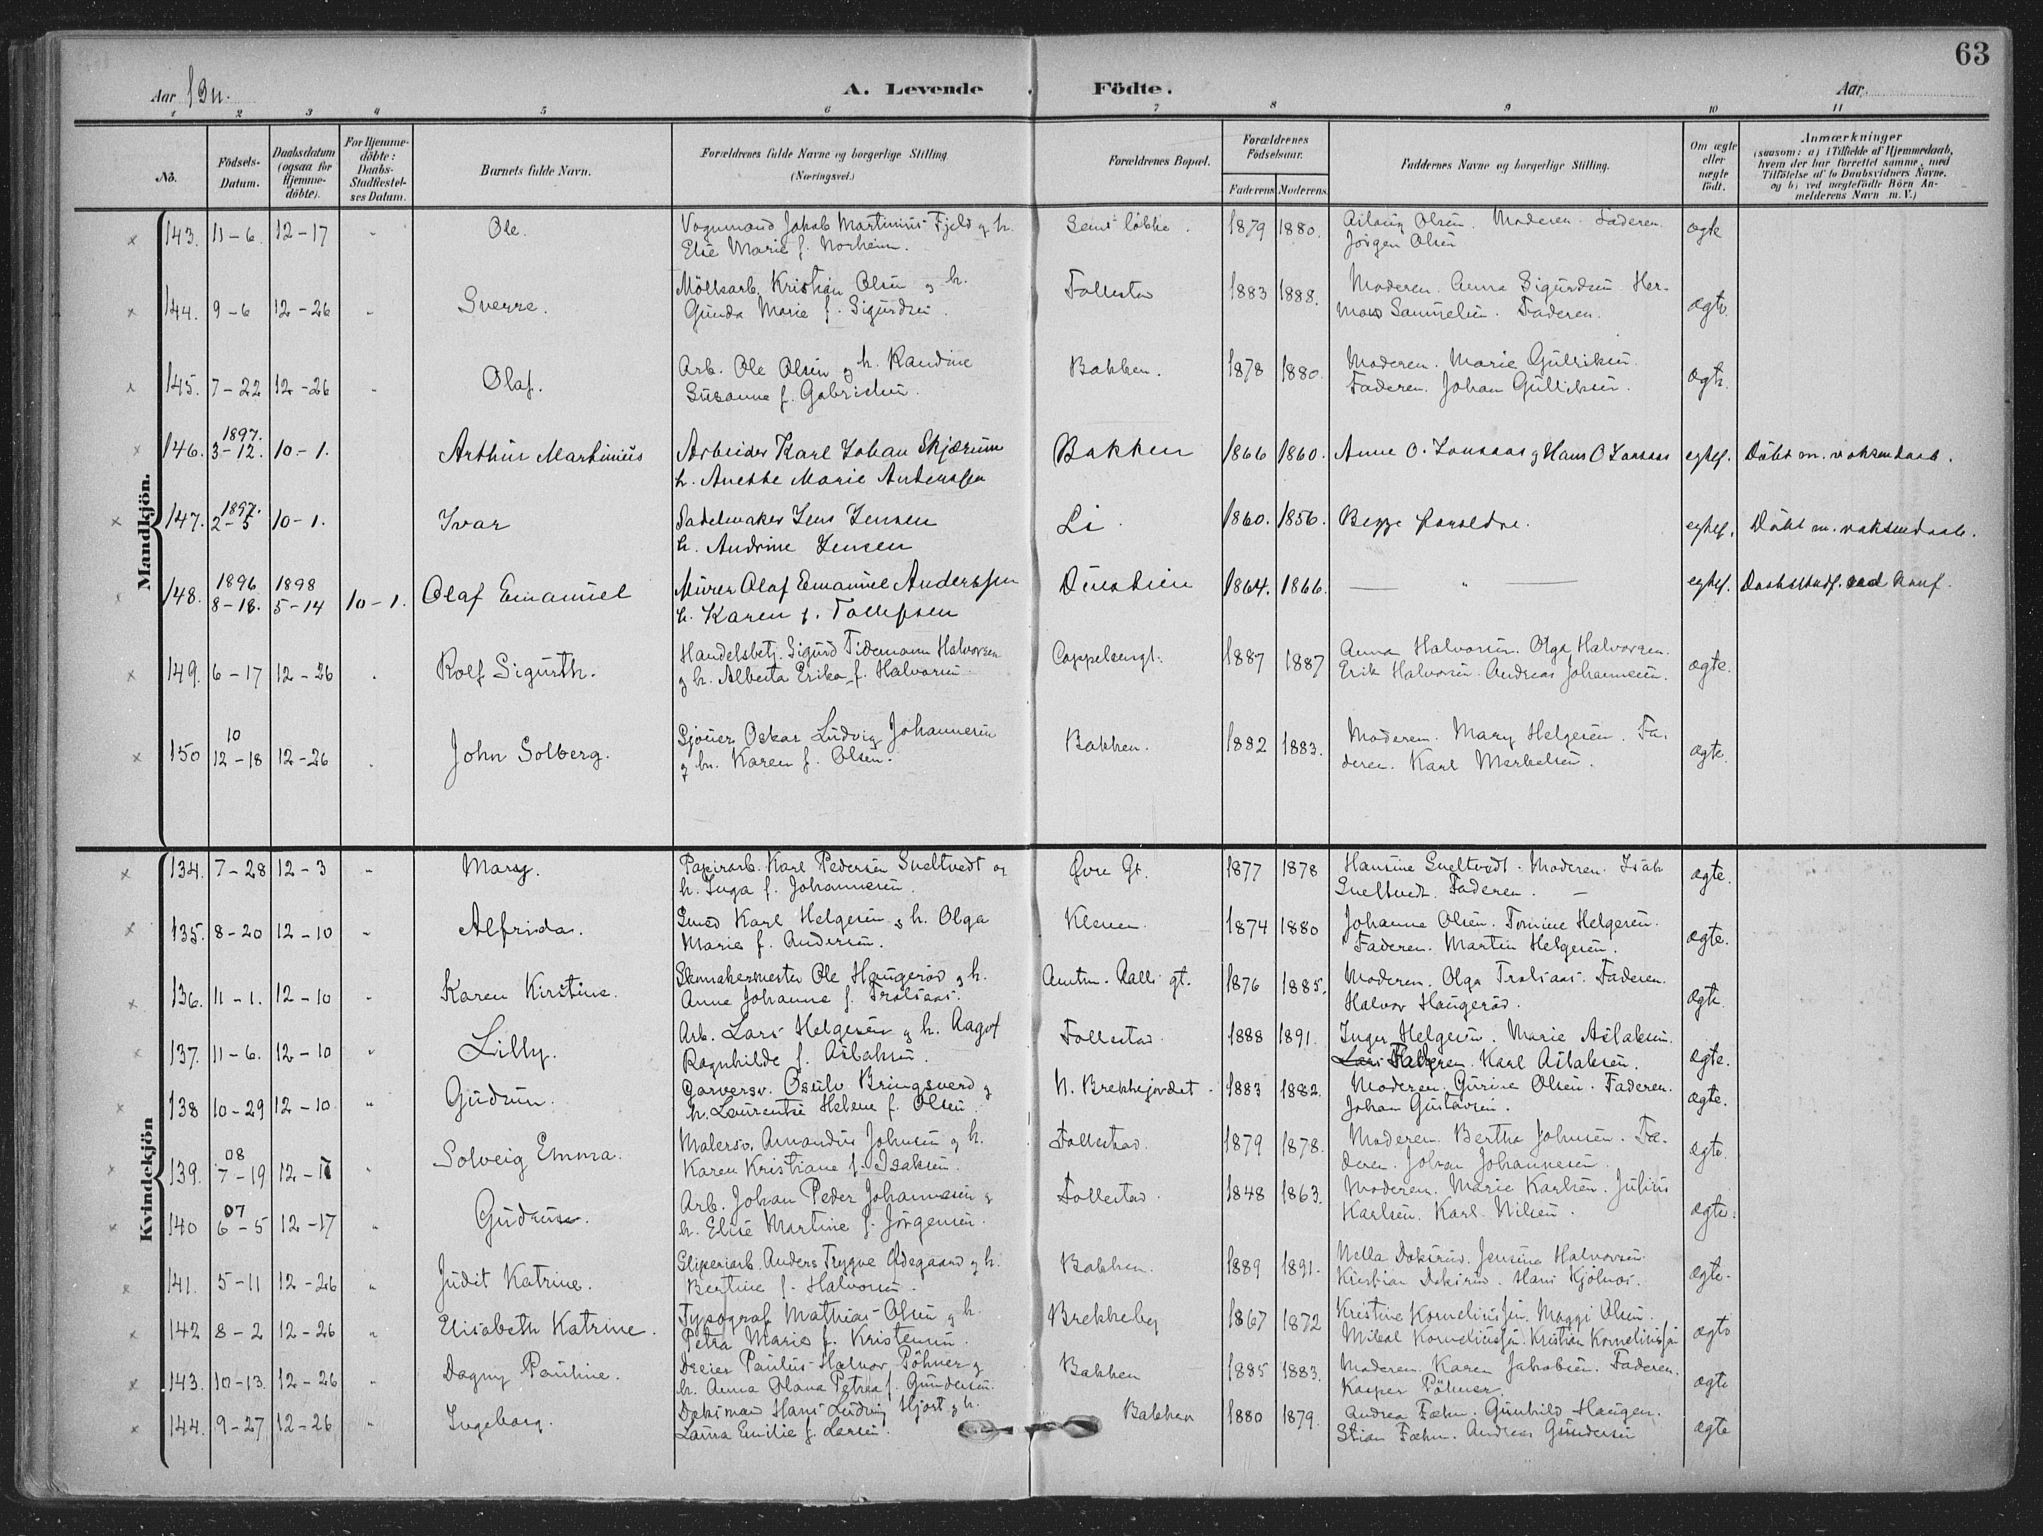 63
Aar 1911. A. Levende Födte. Aar
1 2 3 4 5 6 7 8 9 10 11
No. Födsels-Datum. Daabsdatum (ogsaa for Hjemme-döbte). For Hjemme-döbte: Daabs-Stadfæstel-ses Datum. Barnets fulde Navn. Forældrenes fulde Navne og borgerlige Stilling (Næringsvei.) Forældrenes Bopæl. Forældrenes Födselsaar. Faderens Moderens. Faddernes Navne og borgerlige Stilling. Om ægte eller uægte födt. Anmærkninger (saasom: a) i Tilfælde af Hjemmedaab, hvem der har forrettet samme, med Tilföielse af to Daabsvidners Navne, og b) ved uægtefödte Börn An-melderens Navn m. V.)
Mandkjön.
143. 11-6. 12-17 " Ole. Vognmand Jakob Martinius Fjeld og h. 1879 1880. Aslaug Olsen. Moderen. Faderen. ægte
Elise Marie f. Norheim. Jörgen Olsen
144. 9-6 12-26 " Sverre. Möllearb. Kristian Olsen og h. Follestad 1883 1888. Moderen. Anna Sigurdsen. Her-
Gunda Marie f. Sigurdsen. man Samuelsen. Faderen. ægte.
145. 7-22 12-26 " Olaf. Arb. Ole Olsen og h. Randine Bakken. 1878 1880. Moderen. Marie Gulliksen. ægte.
Susanne f. Gabrielsen. Faderen. Johan Gulliksen.
146. 1897. 3-12. 10-1. Arthur Martinius Arbeider Karl Johan Skjærum Bakken 1866 1860. Anne O. Jonsaas og Hans O Jonsaas egtef. Döbt m. voksendaab.
h. Anette Marie Anderssen
147. 1897. 2-5 10-1. Ivar Sadelmaker Jens Jensen Li. 1860. 1856. Begge foreldre. egtef. Döbt m. voksendaab.
h. Andrine Jensen
148. 1896 8-18. 1898 5-14 10-1. Olaf Emanuel Murer Olaf Emanuel Anderssen 1864. 1866. " egtef. Daabsstadf. ved konf.
h. Karen f. Tollefsen
149. 6-17 12-26 . Rolf Sigurth. Handelsbetj. Sigurd Tidemann Halvorsen Cappelengt. 1887 1887 Anna Halvorsen. Olga Halvorsen. ægte.
og h. Alberta Erika f. Halvorsen. Erik Halvorsen. Andreas Johannesen.
150 10 12-18 12-26 . John Solberg. Sjöuer Oskar Ludvig Johannesen Bakken. 1882 1883. Moderen. Mary Helgesen. Fa-
og h. Karen f. Olsen. deren. Karl Mikkelsen. ægte.
Kvindekjön
134. 7-28 12-3 " Mary. Papirarb. Karl Pedersen Sneltvedt og Övre Gt. 1877 1878 Hansine Sneltvedt. Moderen. Isak ægte.
h. Inga f. Johannesen. Sneltvedt. Faderen.
135. 8-20 12-10 " Alfrida. Smed Karl Helgesen og h. Olga Kleven. 1874 1880 Johanne Olsen. Tomine Helgesen. ægte.
Marie f. Andersen. Faderen. Martin Helgesen.
136. 11-1. 12-10 " Karen Kirstine. Skomakermester Ole Haugeröd og h. Amtm. Aalls gt. 1876 1885. Moderen. Olga Trolsaas. Faderen. ægte.
Anne Johanne f. Trolsaas. Halvor Haugeröd.
137. 11-6. 12-10 " Lilly. Arb. Lars Helgesen og h. Aagot Follestad. 1888 1891. Inger Helgesen. Marie Aslaksen. ægte.
Ragnhilde f. Aslaksen. Faderen. Karl Aslaksen.
138 10-29 12-10 " Gudrun. Garversv. Osulv Bringsverd og N. Brekkejordet. 1883 1882. Moderen. Gurine Olsen. Faderen. ægte.
h. Laurentse Helene f. Olsen. Johan Gustavsen.
139. 08 7-19 12-17 " Solveig Emma. Malersv. Amandus Johnsen og h. Follestad. 1879 1878. Moderen. Bertha Johnsen. Fa- ægte.
Karen Kristiane f. Isaksen. deren. Johan Johannesen.
140 07 6-5 12-17 " Gudrun. Arb. Johan Peder Johannesen og Follestad. 1848 1863. Moderen. Marie Karlsen. Julius ægte.
h. Elise Martine f. Jörgensen. Karlsen. Karl Nilsen.
141. 5-11 12-26 " Judit Katrine. Sliperiarb. Anders Trygve Ödegaard og h. Bakken. 1889 1891. Jensine Halvorsen ægte.
Bertine f. Halvorsen. Kristian Hans Kjölnes.
142 8-2 12-26 " Elisabeth Katrine. Typograf Mathias Olsen og h. Brekkeby 1867 1872 Kristine Korneliussen. Maggi Olsen. ægte
Petra Marie f. Kristensen. Mikal Korneliussen. Kristian Korneliussen
143. 10-13. 12-26 " Dagny Pauline. Dreier Paulus Halvor Pöhner og Bakken 1885 1883. Moderen. Karen Jakobsen. Faderen. ægte
h. Anna Olava Petrea f. Gundersen. Kasper Pöhner.
144. 9-27 12-26 " Ingeborg. Hans Ludvig Hjort og h. Bakken 1880 1879. Andrea Fæhn. Gunhild Haugen. ægte
Laura Emilie f. Larsen. Stian Fæhn. Andreas Gundersen